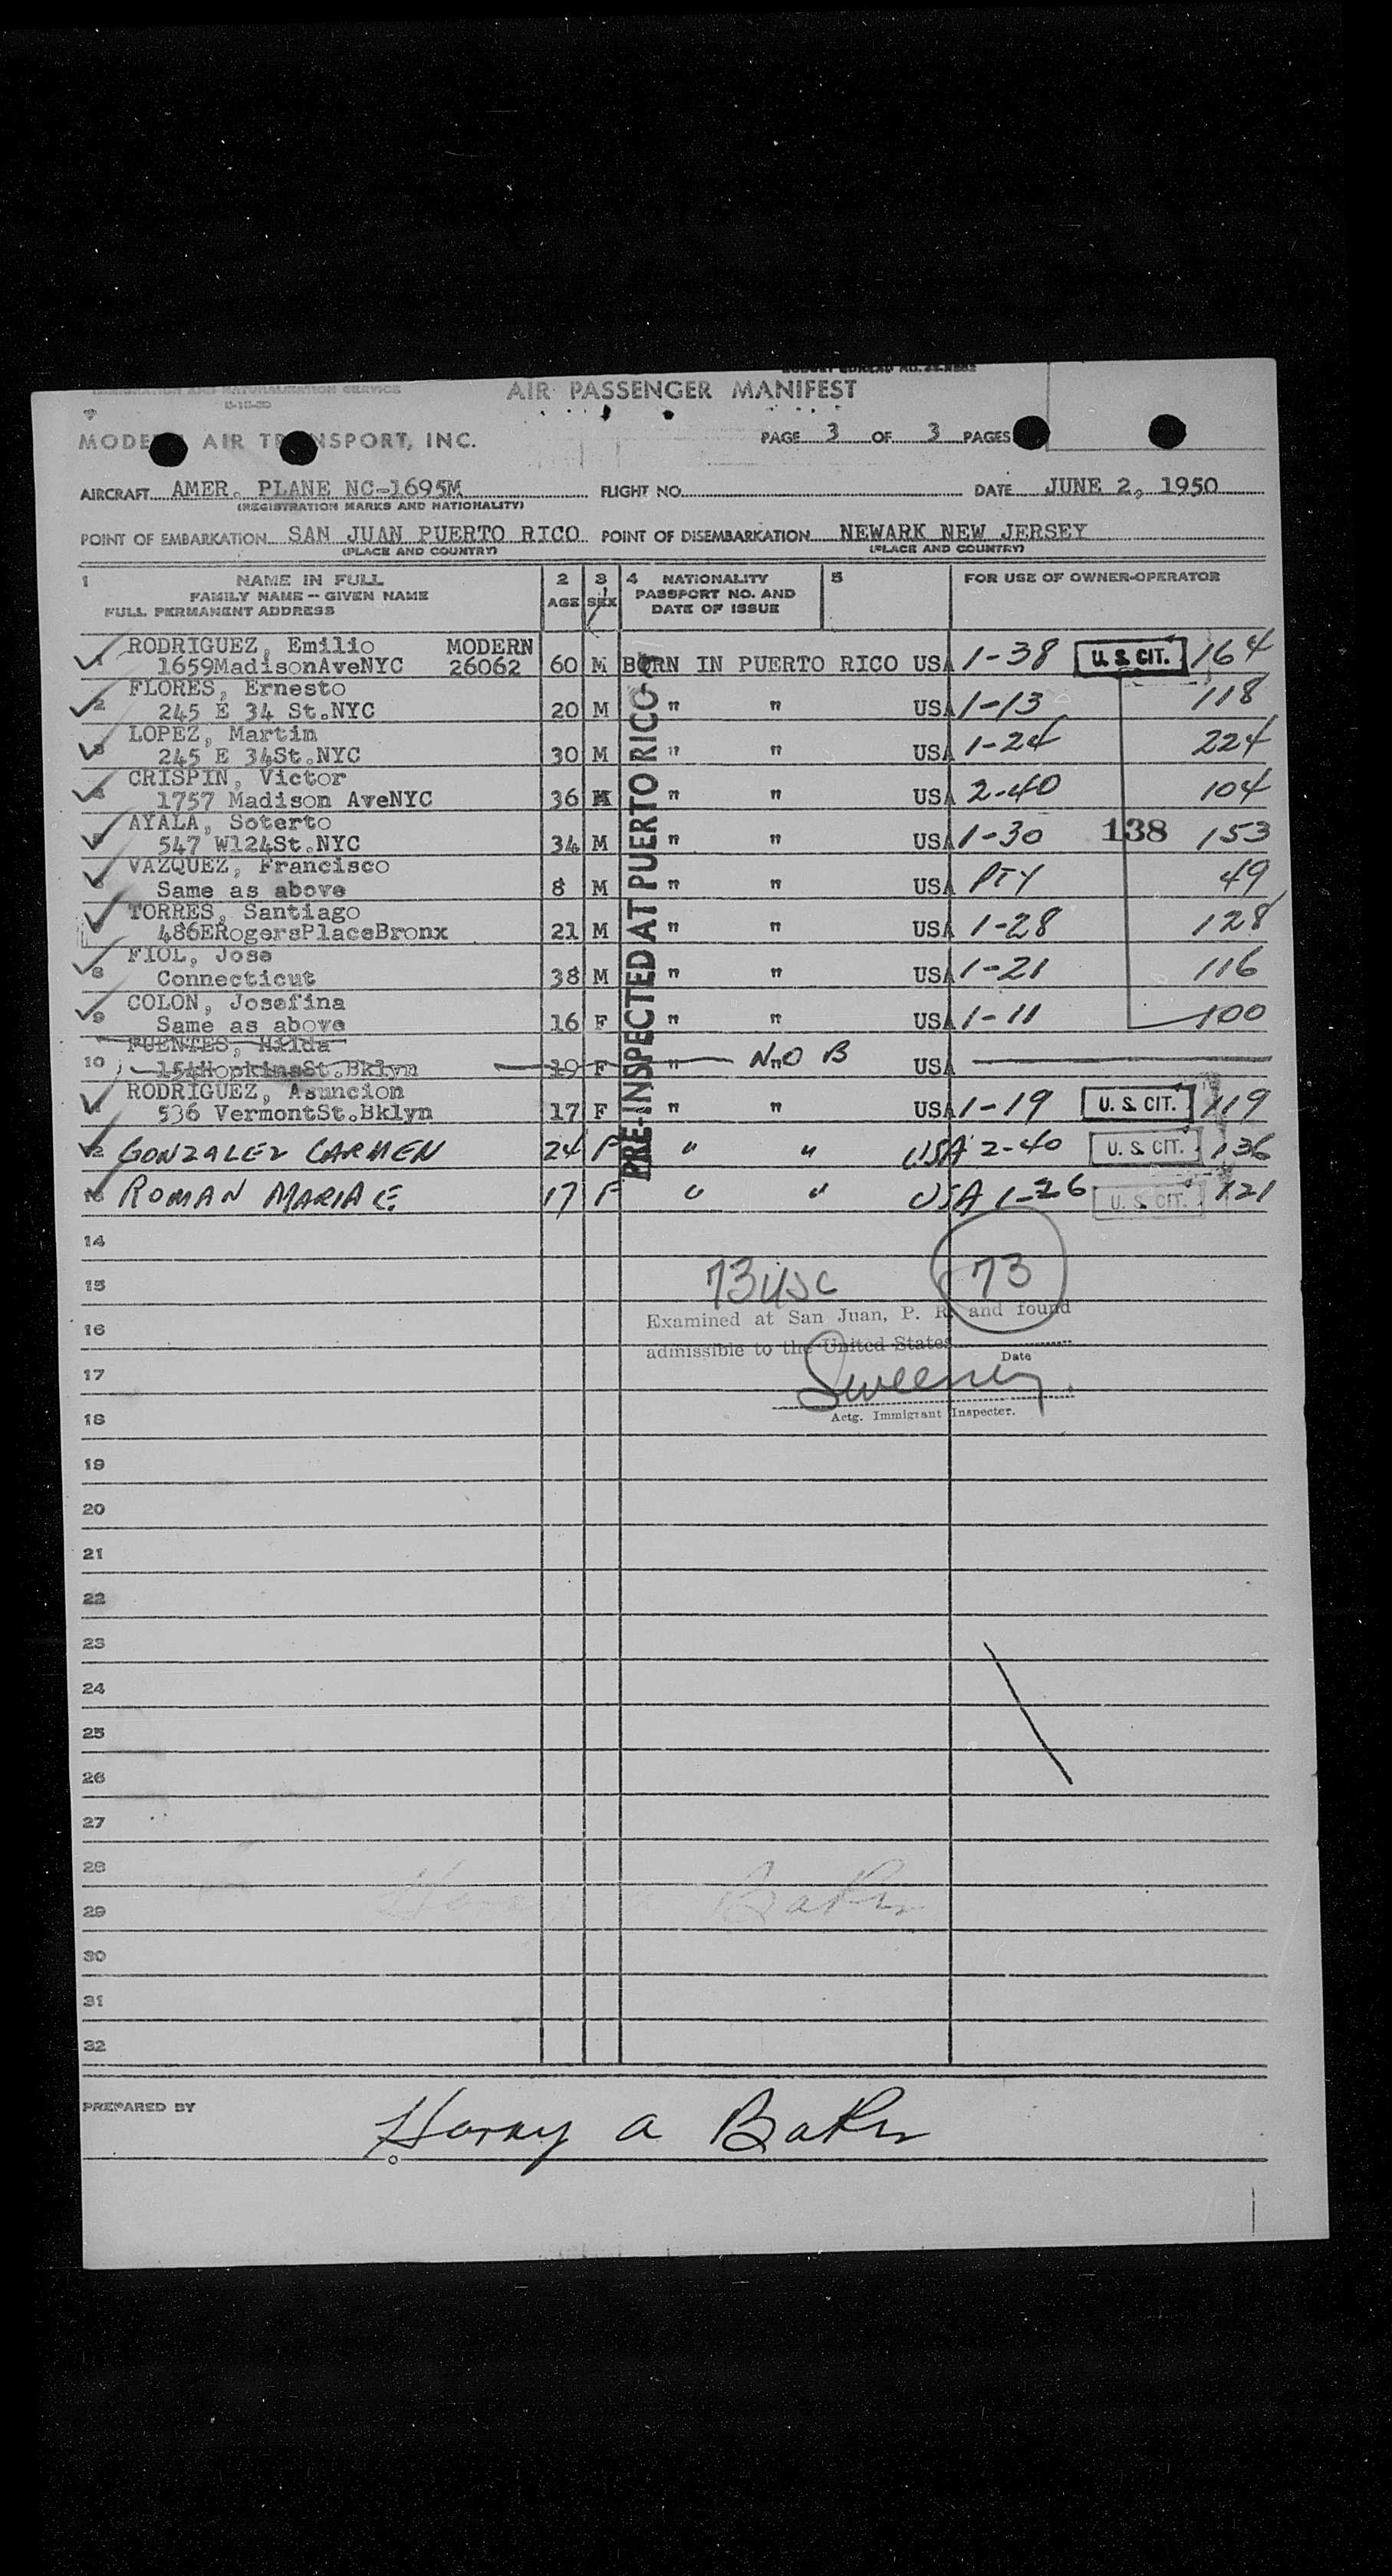 IMMIGRATION AND NATURALIZATION SERVICE
AIR PASSENGER MANIFEST
MODERN AIR TRANSPORT, INC. PAGE 3 OF 3 PAGES
AIRCRAFT AMER. PLANE NC-1695M FLIGHT NO. DATE JUNE 2, 1950
(REGISTRATION MARKS AND NATIONALITY)
POINT OF EMBARKATION SAN JUAN PUERTO RICO POINT OF DISEMBARKATION NEWARK NEW JERSEY
(PLACE AND COUNTRY) (PLACE AND COUNTRY)
1 NAME IN FULL 2 3 4 NATIONALITY 5 FOR USE OF OWNER-OPERATOR
FAMILY NAME -- GIVEN NAME AGE SEX PASSPORT NO. AND
FULL PERMANENT ADDRESS DATE OF ISSUE
RODRIGUEZ, Emilio MODERN
1 1659MadisonAveNYC 26062 60 M BORN IN PUERTO RICO USA 1-38 U. S. CIT. 164
FLORES, Ernesto
2 245 E 34 St.NYC 20 M " " USA 1-13 118
LOPEZ, Martin
3 245 E 34St.NYC 30 M " " USA 1-24 224
CRISPIN, Victor
4 1757 Madison AveNYC 36 M " " USA 2-40 104
AYALA, Soterto
5 547 W124St.NYC 34 M " " USA 1-30 138 153
VAZQUEZ, Francisco
6 Same as above 8 M " " USA PTY 49
TORRES, Santiago
486ERogersPlaceBronx 21 M " " USA 1-28 128
FIOL, Jose
8 Connecticut 38 M " " USA 1-21 116
COLON, Josefina
9 Same as above 16 F " " USA 1-11 100
FUENTES, Hilda
10 154HopkinsSt.Bklyn 19 F " N.O B USA
RODRIGUEZ, Asuncion
11 536 VermontSt.Bklyn 17 F " " USA 1-19 U. S. CIT. 119
12 GONZALEZ CARMEN 24 F " " USA 2-40 U. S. CIT. 136
13 ROMAN MARIA E. 17 F " " USA 1-26 U. S. CIT. 121
PRE-INSPECTED AT PUERTO RICO
14
15 73 USC 73
16 Examined at San Juan, P. R. and found
admissible to the United States
17 Date
Sweeney
18 Actg. Immigrant Inspecter.
19
20
21
22
23
24
25
26
27
28
29
30
31
32
PREPARED BY Harry a Baker